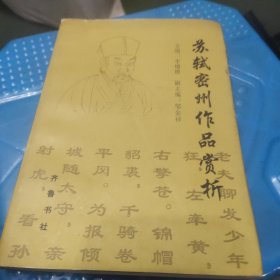 苏轼密州作品赏析
主编
副主编
老夫聊发少年
狂，左牵黄，
右擎苍。锦帽
貂裘，千骑卷
平冈。为报倾
城随太守，亲
射虎，看孙
齐鲁书社